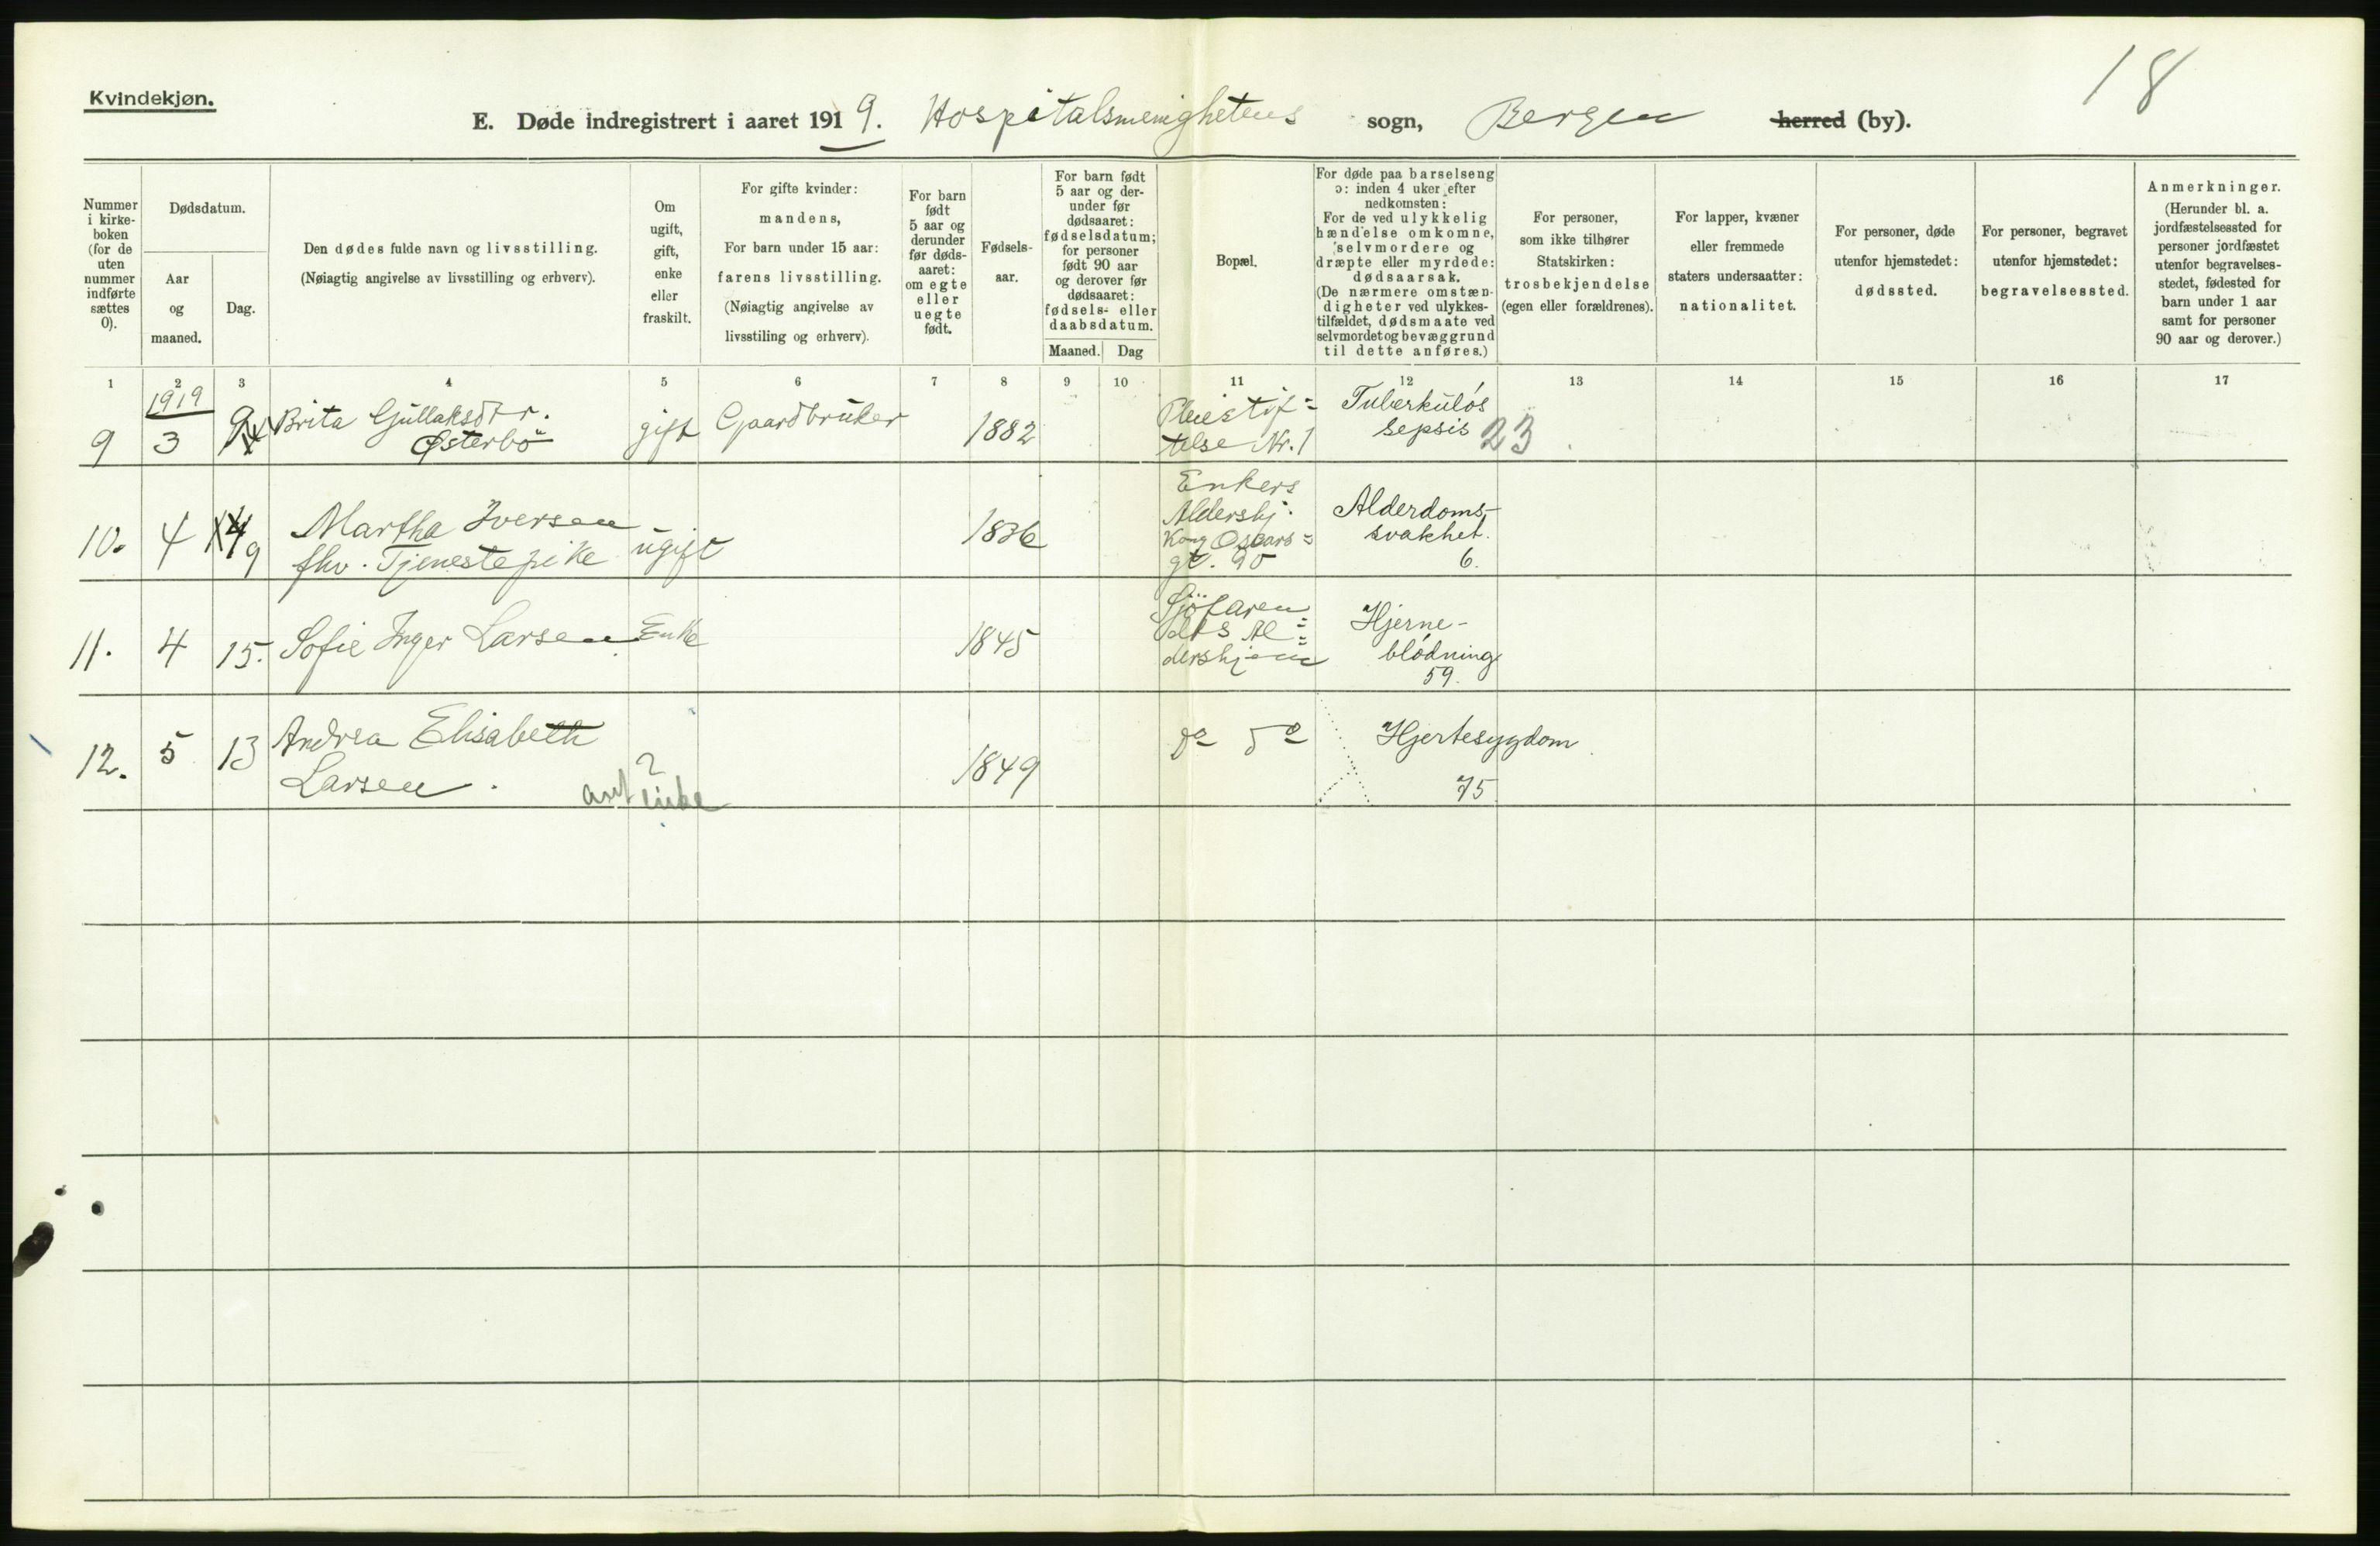 Kvindekjøn.
18
E. Døde indregistrert i aaret 1919. Hospitalsmenighetens sogn, Bergen herred (by).
Nummer
i kirke-
boken
(for de
uten
nummer
indførte
sættes
0).
Dødsdatum.
Aar
og
maaned.
Dag.
Den dødes fulde navn og livsstilling.
(Nøiagtig angivelse av livsstilling og erhverv).
Om
ugift,
gift,
enke
eller
fraskilt.
For gifte kvinder:
mandens,
For barn under 15 aar:
farens livsstilling.
(Nøiagtig angivelse av
livsstiling og erhverv).
For barn
født
5 aar og
derunder
før døds-
aaret:
om egte
eller
uegte
født.
Fødsels-
aar.
For barn født
5 aar og der-
under før
dødsaaret:
fødselsdatum;
for personer
født 90 aar
og derover før
dødsaaret:
fødsels- eller
daabsdatum.
Maaned. Dag
Bopæl.
For døde paa barselseng
ɔ: inden 4 uker efter
nedkomsten:
For de ved ulykkelig
hændelse omkomne,
selvmordere og
dræpte eller myrdede:
dødsaarsak.
(De nærmere omstæn-
digheter ved ulykkes-
tilfældet, dødsmaate ved
selvmordet og bevæggrund
til dette anføres.)
For personer,
som ikke tilhører
Statskirken:
trosbekjendelse
(egen eller forældrenes).
For lapper, kvæner
eller fremmede
staters undersaatter:
nationalitet.
For personer, døde
utenfor hjemstedet:
dødssted.
For personer, begravet
utenfor hjemstedet:
begravelsessted.
Anmerkninger.
(Herunder bl. a.
jordfæstelsessted for
personer jordfæstet
utenfor begravelses-
stedet, fødested for
barn under 1 aar
samt for personer
90 aar og derover.)
1 2 3 4 5 6 7 8 9 10 11 12 13 14 15 16 17
1919
9 3 9 Brita Gjullaksdtr.
Østerbö
gift Gaardbruker 1882
Pleiestif=
telse Nr. 1
Tuberkulös
sepsis 23
10. 4 9 Martha Iversen
fhv. Tjenestepike
ugift 1836
Enkers
Aldershj.
Kong Oscars=
gt. 90
Alderdoms-
svakhet.
6.
11. 4 15. Sofie Inger Larsen Enke 1845
Sjöfaren
des Al=
dershjem
Hjerne-
blödning
59.
12. 5 13 Andrea Elisabeth
Larsen.
?
ant enke
1849
do do
Hjertesygdom
75